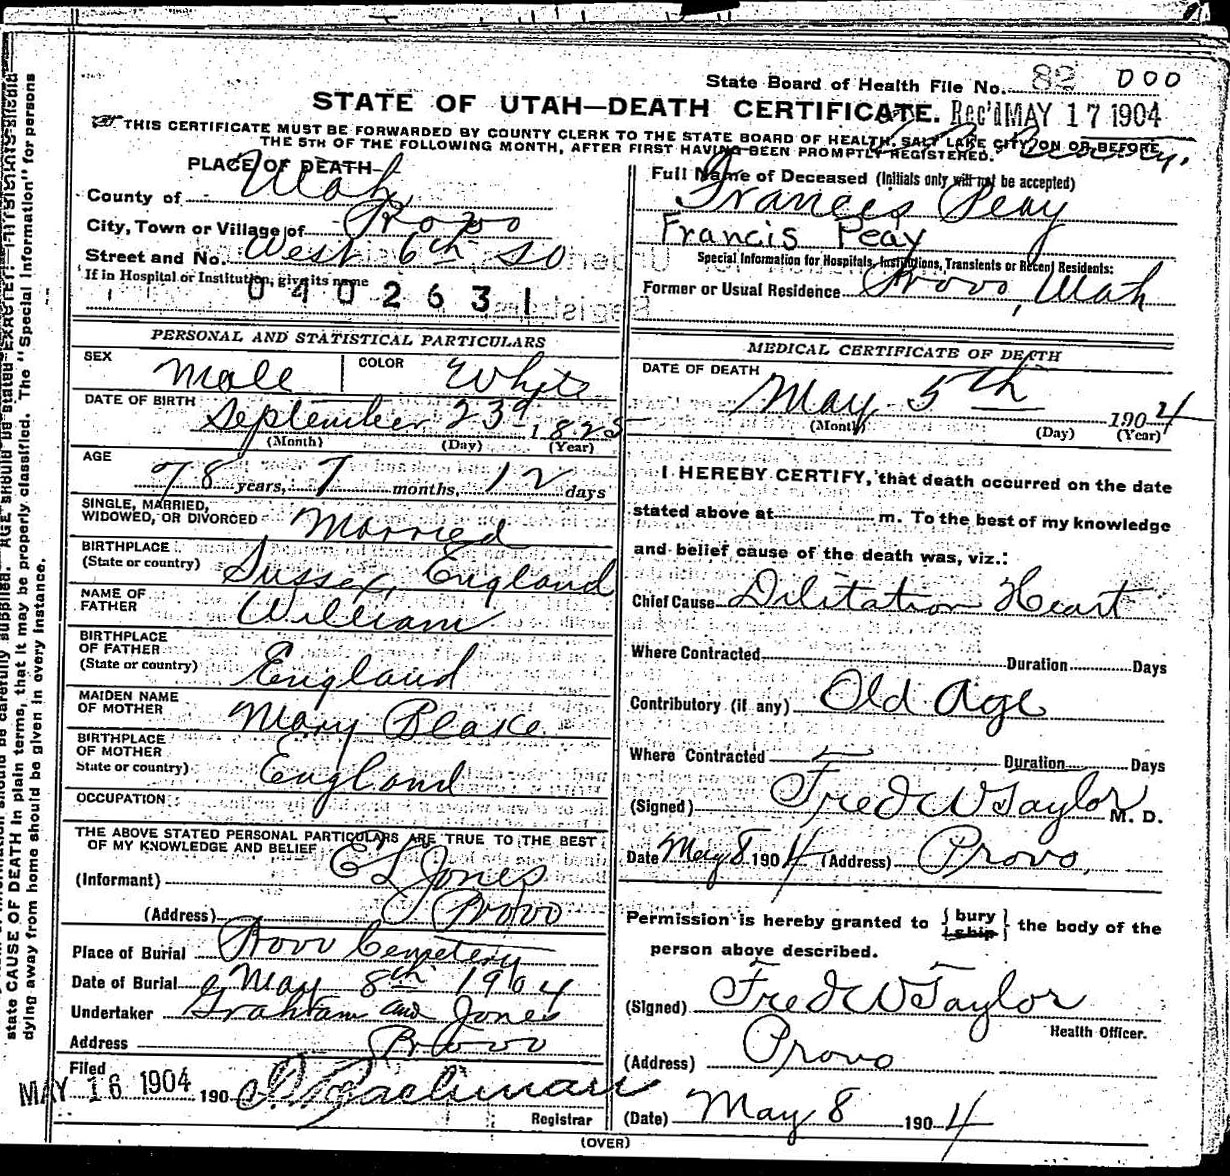 State Board of Health File No. 82 000
STATE OF UTAH—DEATH CERTIFICATE. Rec'd MAY 17 1904
THIS CERTIFICATE MUST BE FORWARDED BY COUNTY CLERK TO THE STATE BOARD OF HEALTH, SALT LAKE CITY, ON OR BEFORE
THE 5TH OF THE FOLLOWING MONTH, AFTER FIRST HAVING BEEN PROMPTLY REGISTERED.
PLACE OF DEATH—
County of Utah
City, Town or Village of Provo
Street and No. West 6th So
If in Hospital or Institution, give its name
0402631
Full Name of Deceased (Initials only will not be accepted)
Frances Peay
Francis Peay
Special Information for Hospitals, Institutions, Transients or Recent Residents:
Former or Usual Residence Provo, Utah
PERSONAL AND STATISTICAL PARTICULARS
SEX Male COLOR White
DATE OF BIRTH September 23d 1825
(Month) (Day) (Year)
AGE 78 years, 7 months, 12 days
SINGLE, MARRIED,
WIDOWED, OR DIVORCED Married
BIRTHPLACE
(State or country) Sussex, England
NAME OF
FATHER William
BIRTHPLACE
OF FATHER
(State or country) England
MAIDEN NAME
OF MOTHER Mary Blake
BIRTHPLACE
OF MOTHER
State or country) England
OCCUPATION
THE ABOVE STATED PERSONAL PARTICULARS ARE TRUE TO THE BEST
OF MY KNOWLEDGE AND BELIEF
(Informant) E L Jones
(Address) Provo
Place of Burial Provo Cemetery
Date of Burial May 8th 1904
Undertaker Graham and Jones
Address Provo
Filed
MAY 16 1904 190
Registrar
MEDICAL CERTIFICATE OF DEATH
DATE OF DEATH
May 5th 1904
(Month) (Day) (Year)
I HEREBY CERTIFY, that death occurred on the date
stated above at m. To the best of my knowledge
and belief cause of the death was, viz.:
Chief Cause Dilitation Heart
Where Contracted Duration Days
Contributory (if any) Old Age
Where Contracted Duration Days
(Signed) Fred W Taylor M. D.
Date May 8 1904 (Address) Provo,
Permission is hereby granted to { bury ship } the body of the
person above described.
(Signed) Fred W Taylor
Health Officer.
(Address) Provo
(Date) May 8 1904
(OVER)
state CAUSE OF DEATH in plain terms, that it may be properly classified. The "Special Information" for persons
dying away from home should be given in every instance.